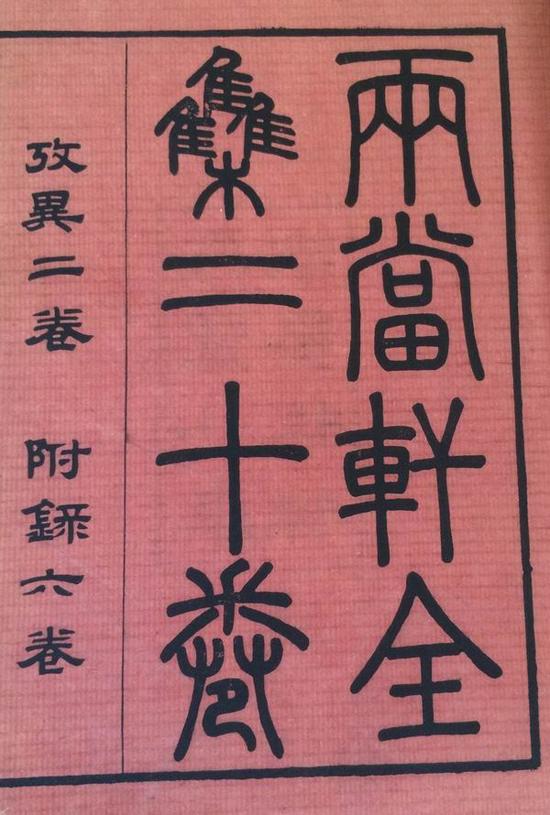 兩當軒全
集二十卷
攷異二卷 附錄六卷